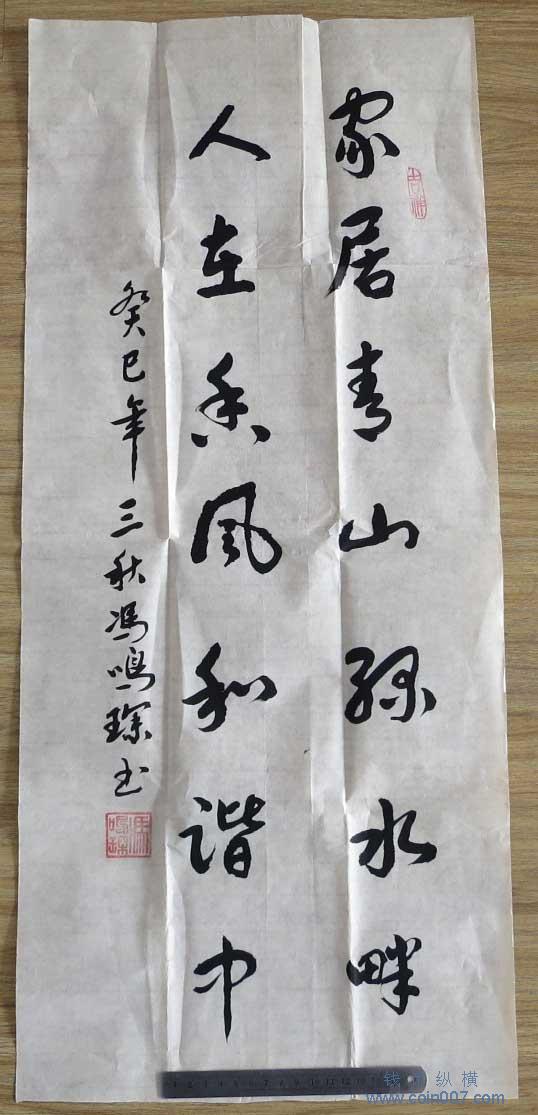 家居青山绿水畔
人在春风和谐中
癸巳年三秋冯鸣琛书
钱币纵横
www.coin007.com